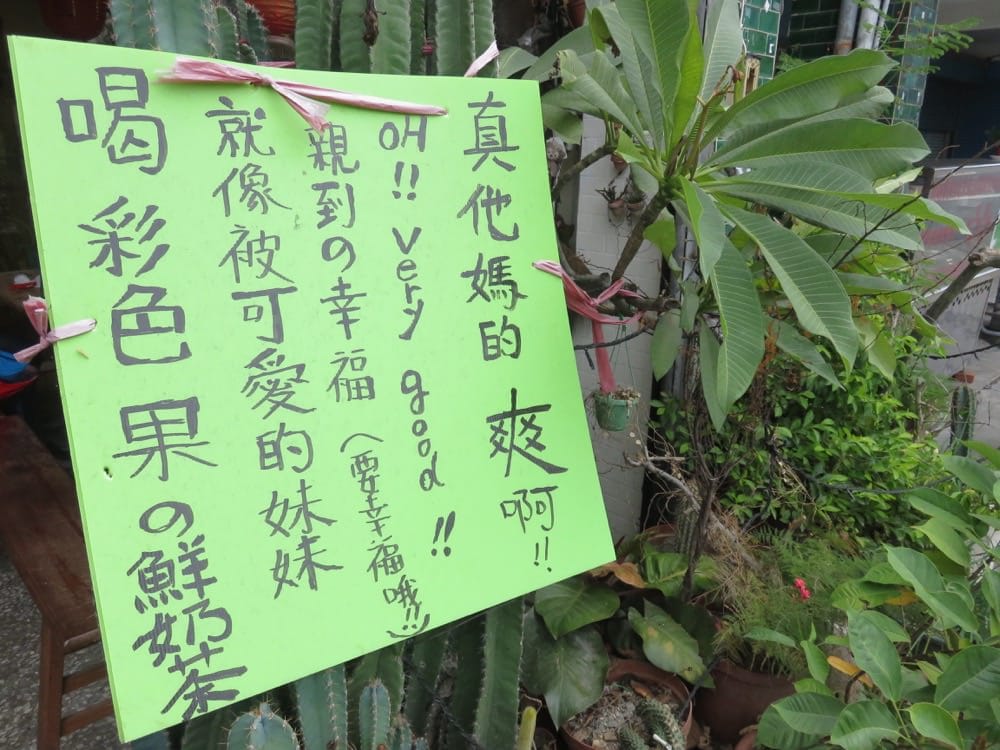 喝彩色果の鮮奶茶
就像被可愛的妹妹
親到の幸福（要幸福哦!!）
OH!! very good!!
真他媽的爽啊!!